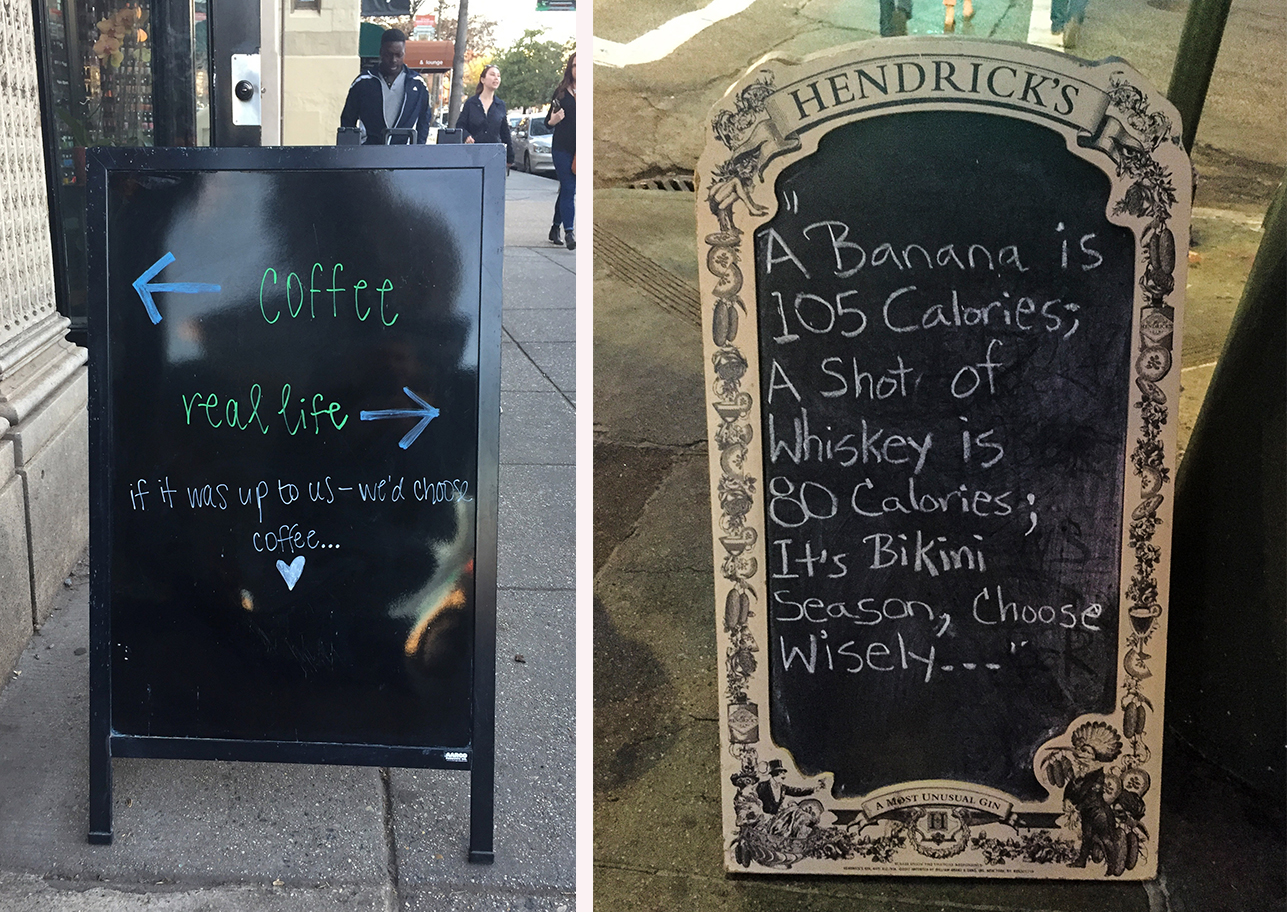 & lounge
coffee
real life
if it was up to us - we'd choose
coffee...
AARCO
HENDRICK'S
"A Banana is
105 Calories;
A Shot of
Whiskey is
80 Calories;
It's Bikini
Season, Choose
Wisely---"
A MOST UNUSUAL GIN
H